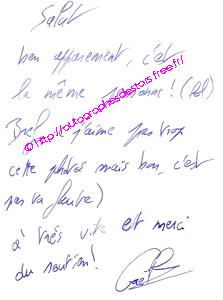 Salut
ben apparement, c'est
la même personne! (lol)
Bref j'aime pas trop
cette photos mais bon, c'est
pas ta faute)
à très vite et merci
du soutien!
http://autographesdesstars.free.fr/